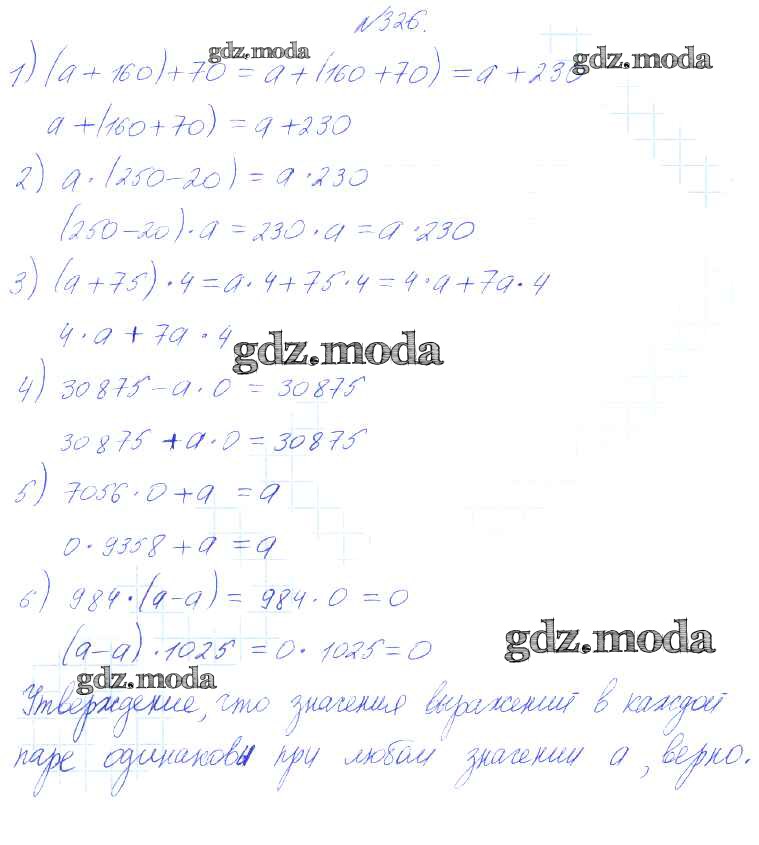 №326.
gdz.moda
gdz.moda
1) (а + 160) + 70 = а + (160 + 70) = а + 230
а + (160 + 70) = а + 230
2) а · (250 - 20) = а · 230
(250 - 20) · а = 230 · а = а · 230
3) (а + 75) · 4 = а · 4 + 75 · 4 = 4 · а + 7а · 4
4 · а + 7а · 4
gdz.moda
4) 30875 - а · 0 = 30875
30875 + а · 0 = 30875
5) 7056 · 0 + а = а
0 · 9358 + а = а
6) 984 · (а - а) = 984 · 0 = 0
(а - а) · 1025 = 0 · 1025 = 0
gdz.moda
gdz.moda
Утверждение, что значения выражений в каждой
паре одинаковы при любом значении а, верно.